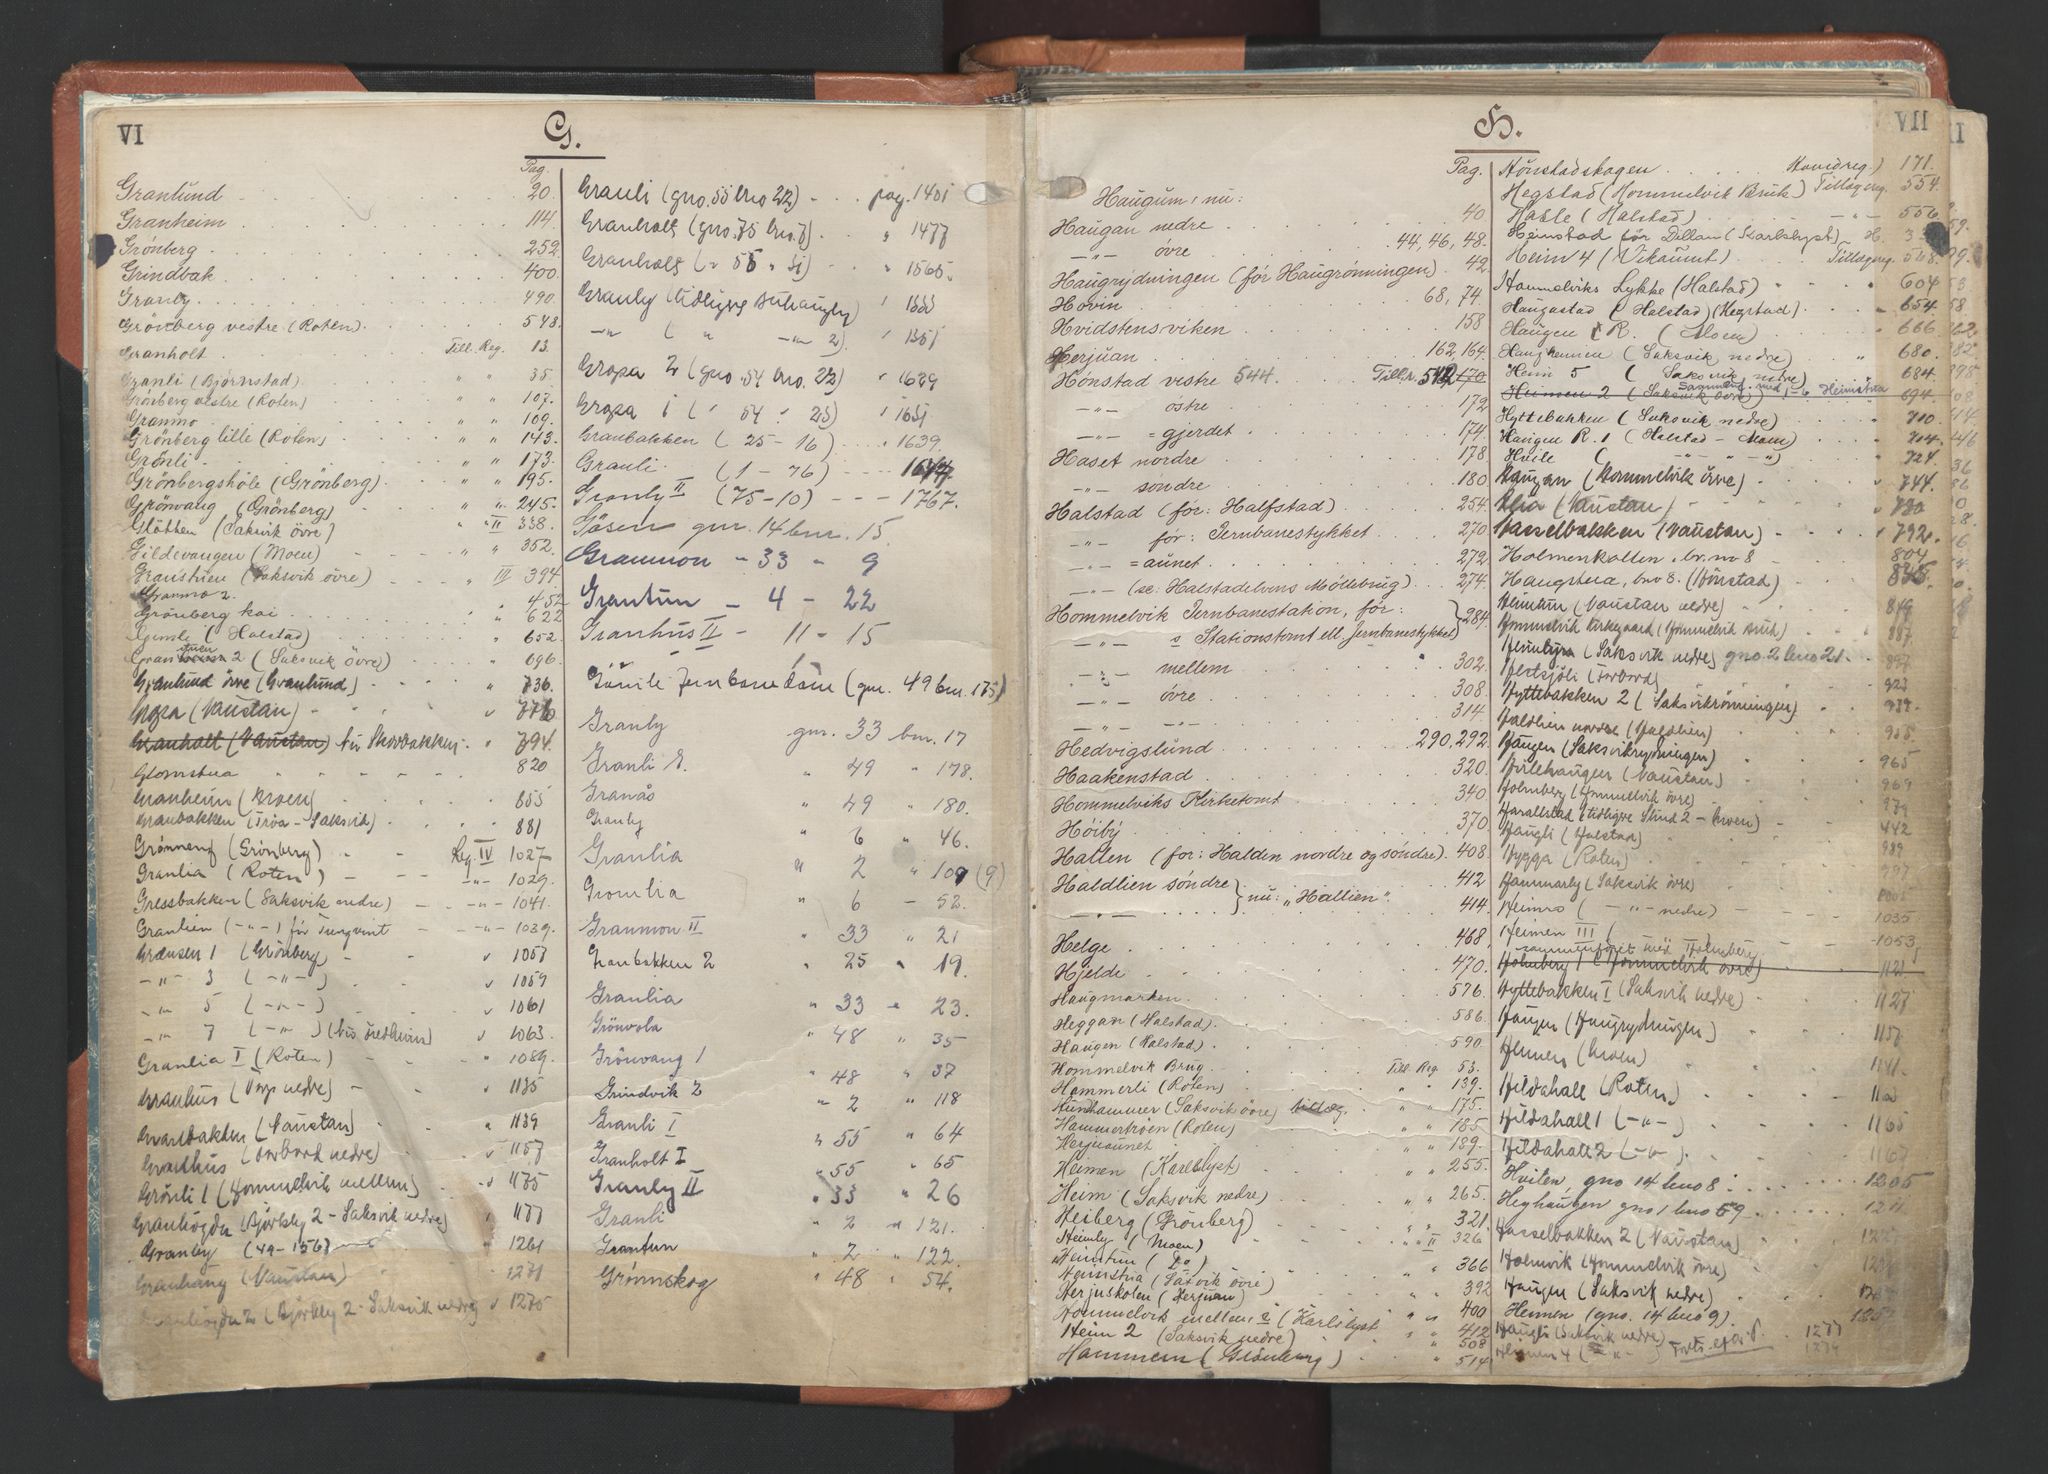 VI
G.
Pag.
Granlund 20.
Granheim 114.
Grönberg 252.
Grindbak 400.
Granly 490.
Grönberg vestre (Roten). 548.
Granholt Till. Reg. 13.
Granli (Björnstad) " " 35.
Grönberg vestre (Roten) " " 107.
Granmo " " 109.
Grönberg lille (Roten) " " 143.
Grönli " " 173.
Grönbergshöle (Grönberg) " " 195.
Grönvang (Grönberg) " " 245.
Slötten (Saksvik övre) " II 338.
Gildevangen (Moen) " " 352.
Granstuen (Saksvik övre) " III 394.
Granmo 2. " 452
Grönberg kai " 622
Gimli (Halstad) " 652.
Granstuen 2 (Saksvik övre) " 696.
Granlund övre (Granlund) " 736.
Gropa (Naustan) " 776
Granholt (Naustan) Nu Skovbakken " 794.
Glomstua " 820
Granheim (Moen) 855
Granbakken (Tröa - Saksvik) 881
Grønneng (Grönberg) Reg. IV 1027
Granlia (Roten) -"- 1029.
Gressbakken (Saksvik nedre) -"- 1041.
Granlien (-"-) för Furukvist -"- 1039.
Grensen 1 (Grönberg) " 1057
-"- 3 (-"-) " 1059
-"- 5 (-"-) " 1061
-"- 7 (-"-) " 1063.
Granlia I (Roten) " 1089.
Granhus (Vege nedre) " 1135
Granbakken (Naustan) " 1139
Granhus (Forbord nedre) " 1157
Grönli 1 (Hommelvik mellem) " 1175
Granhögda (Björkly 2 - Saksvik nedre) " 1177
Granby (49-156) " 1261
Granhaug (Naustan) " 1271
Granhögda 2 (Björkly 2 - Saksvik nedre) " 1275
Granli (gno. 55 bno 22) pag. 1401
Granholt (gno. 75 bno. 7) " 1477
Granholt (" 55 " 51) " 1565.
Granly (tidligere Solhaugby) " 1333
-"- ( " -"- 2) " 1351
Gropa 2 (gno. 54 bno. 22) " 1629
Gropa i (" 54 " 23) " 1631
Granbakken (25-16) 1639
Granli (1-76) 1647.
Granly II (75-10) 1767.
Gåsen gnr. 14 bnr. 15.
Granmon - 33 " 9
Grantun - 4 - 22
Granhus II - 11 - 15
Gåsile Jernbanedam (gnr. 49 bnr. 175)
Granly gnr. 33 bnr. 17
Granli 2. " 49 " 178.
Granås " 49 " 180.
Granly " 6 " 46.
Granlia " 2 " 109 (9)
Gromlia " 6 - 52.
Granmon II " 33 " 21
Granbakken 2 " 25 " 19.
Granlia " 33 " 23.
Grönvola " 48 " 35
Grönvang 1 " 48 " 37
Grindvik 2 " 2 " 118
Granli I " 55 " 64
Granholt I " 55 " 65
Granly II " 33 " 26
Granli " 2 " 121.
Grantun " 2 " 122.
Grønnskog " 48 " 54.
VII
H.
Pag.
Haugum, nu:
Haugan nedre 40
-"- övre 44, 46, 48.
Haugrydningen (för Haugrönningen) 42.
Hovin 68, 74.
Hvidstensviken 158
Herjuan 162, 164.
Hönstad vestre 544. Till.r. 542, 170
-"- östre 172
-"- =gjerdet 174.
Haset nordre 178
-"- söndre 180
Halstad (for: Halfstad) 254.
-"- för: Jernbanestykket 270
-"- =aunet 272
-"- (se: Halstadelvens Möllebrug) 274.
Hommelvik Jernbanestation, för: } 284.
-"- s Stationstomt ell. Jernbanestykket
-"- mellem 302.
-"- övre 308.
-"- -"- 314.
Hedvigslund 290, 292.
Haakenstad 320.
Hommelviks Kirketomt 340.
Höiby 370.
Hallen (for: Halden nordre og söndre) 408.
Haldlien söndre } nu: „Hallien". 412
-"- 414.
Helge 468,
Hjelde 470.
Haugmarken 576.
Heggan (Halstad) 586.
Haugen (Halstad) 590.
Hommelvik Brug Till Reg. 53.
Hammerli (Roten) " " 139.
Hunhammer (Saksvik övre) tillæg. " " 175.
Hammertröen (Roten) " " 185
Herjuaunet " " 189.
Heimen (Karlslyst) " " 255.
Heim (Saksvik nedre) " " 265.
Heiberg (Grönberg) 321.
Heimly (Moen) " II 326.
Heimtun (Do)
Heimstua (Saksvik övre) " " 366
Herjuskolen (Herjuan) " " 392
Hommelvik mellem (Karlslyst " " 400
Heim 2 (Saksvik nedre) " " 412
508
Hammern (Grönberg) " 514
Hönstadskogen Hovedreg.) 171.
Hegstad (Hommelvik Bruk) Tillægreg. 554.
Hasle (Halstad) -"- 556.
Heimstad för Dillan (Karlslyst)
Heim 4 (Vikaunt) Tillægreg. 568.
Hommelviks Lykke (Halstad) " 604
Haugastad (Halstad) (Hegstad) " 654
Haugen R. (Moen) 666
Haugheimen (Saksvik nedre) " 680.
Heim 5 (Saksvik nedre) 684.
Heimen 2 (Saksvik övre) Sammenf. med 1-6 Heimstua 694.
Hyttebakken (Saksvik nedre) 710
Haugen R. 1 (Halstad - Moen) 714.
Hvile ( -"- " -"-) 724
Haugan (Hommelvik övre) 744.
Naustan) 780
Hasselbakken (Naustan) 792.
Holmenkollen, br. nr 8 804
Haugstua, bno 8. (Hönstad) 835.
Heimtun (Naustan nedre) 849
Hommelvik Kirkegaard (Hommelvik Bruk) 887.
Heimlyng (Saksvik nedre) gno 2 bno 21. 897
Hertsjöli (Forbord) 923
Hyttebakken 2 (Saksvikrönningen) 937
Haldlien nordre (Haldlien) 955
Haugen (Saksvikrydningen) 965
Hvilehaugen (Naustan) 969
Holmberg (Hommelvik övre) 979
Haraldstad (tidligere Stind 2 - Moen) 442
Haugli (Halstad) 989
Hygga (Roten) 997
Hammarby (Saksvik övre)
Heimro (-"- nedre) 1035
Heimen III ( 1053
Holmberg 1 (Hommelvik övre) sammenföiet med Holmberg 1121
Hyttebakken I (Saksvik nedre) 1127
Haugen (Haugrydningen) 1137
Heimen (Moen) 1141.
Hildahall (Roten)
Hildahall 1 (-"-) 1165
Hildahall 2 (-"-) 1167
Hvilen, gno 14 bno 8. 1205
Heghaugen gno 1 bno 59 1211
Hasselbakken 2 (Naustan)
Holmvik (Hommelvik övre)
Haugen (Saksvik nedre)
Heimen (gno. 14 bno 9). 1257
Haugli (Saksvik nedre) 1277
Heimen 4 (-"-) Forts. efter P. 1279